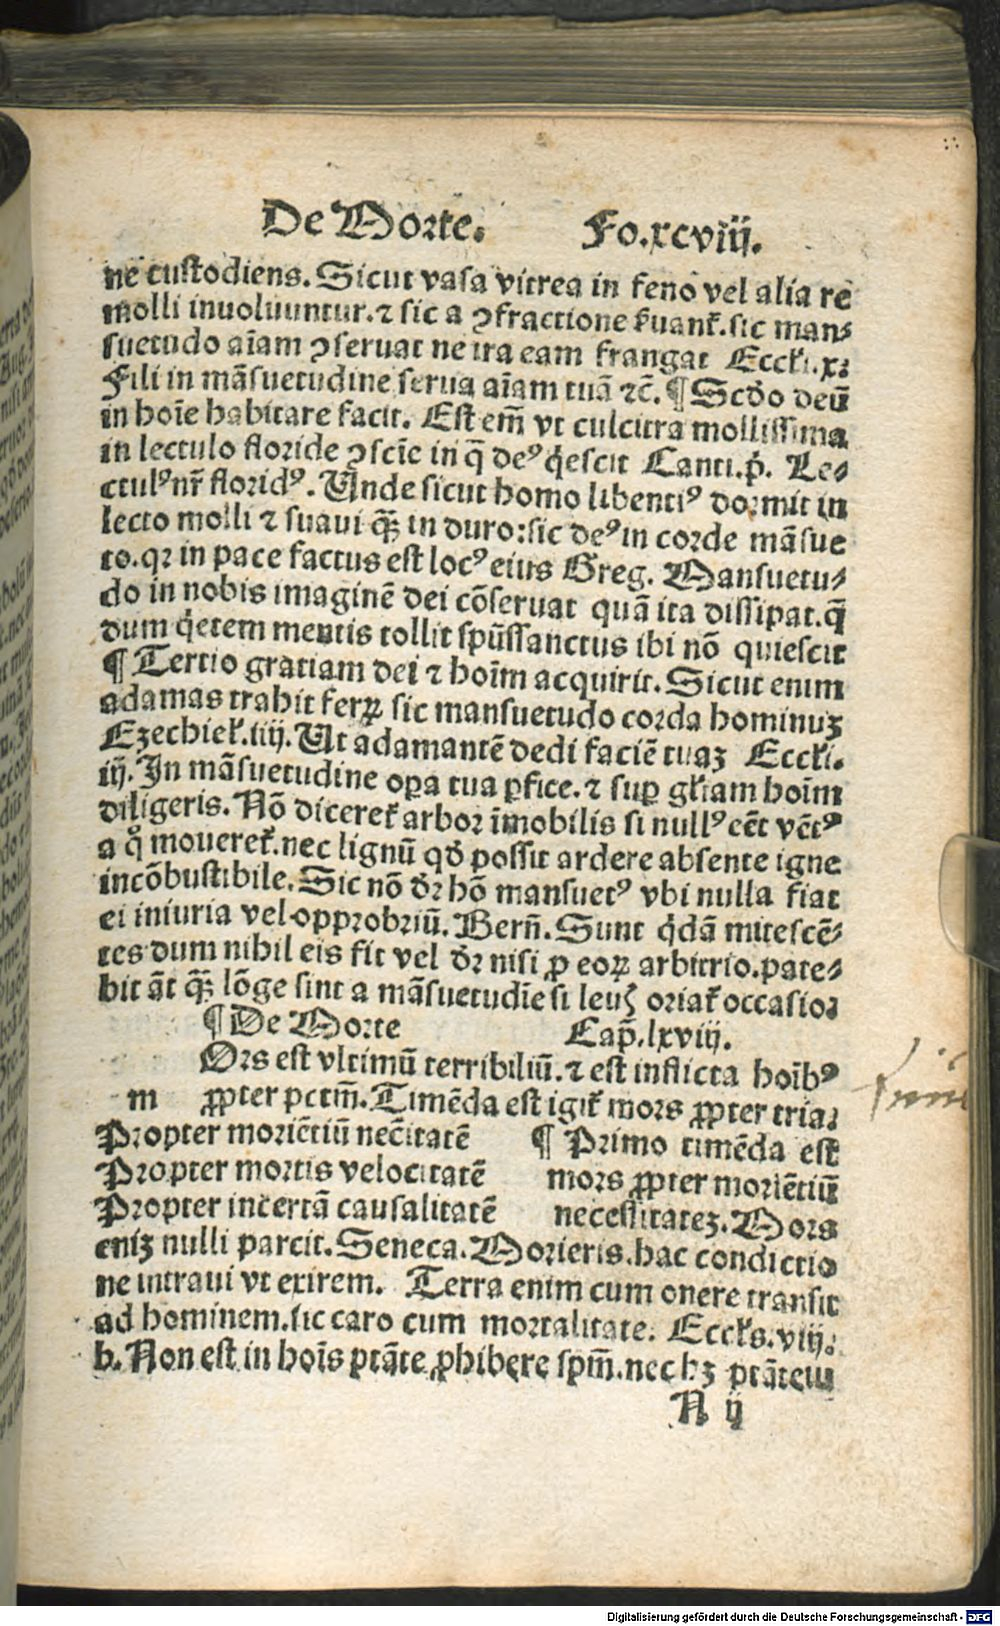 De Morte. Fo.xcviij.
ne custodiens. Sicut vasa vitrea in feno vel alia rē
molli inuoluuntur. ⁊ sic a ꝯfractione ẜuant᷑. sic man⸗
suetudo aīam ꝯseruat ne ira eam frangat Eccłi.x.
Fili in māsuetudine serua aīam tuā ⁊c̄. ¶ Scd̓o deū
in hoīe habitare facit. Est em̄ vt culcitra mollissima
in lectulo floride ꝯscīe in q̄ deꝰ q̇escit Canti.p̓. Le⸗
ctulꝰ nr̄ floridꝰ. Unde sicut homo libentiꝰ dormit in
lecto molli ⁊ suaui q̄ꝫ in duro: sic deꝰ in corde māsue
to. qꝛ in pace factus est locꝰ eius Greg. Mansuetu⸗
do in nobis imaginē dei cōseruat quā ita dissipat. q̄
dum q̇etem mentis tollit spūssanctus ibi nō quiescit
¶ Tertio gratiam dei ⁊ hoīm acquirit. Sicut enim
adamas trahit ferꝝ sic mansuetudo corda hominuꝫ
Ezechieł.iij. Ut adamantē dedi faciē tuaꝫ Eccłi.
iij. In māsuetudine oꝑa tua ꝑfice. ⁊ suꝑ głiam hoīm
diligeris. Nō diceret᷑ arbor īmobilis si nullꝰ eēt vētꝰ
a q̊ moueret᷑. nec lignū qd̓ possit ardere absente igne
incōbustibile. Sic nō dꝛ̄ hō mansuetꝰ vbi nulla fiat
ei iniuria vel opprobriū. Berñ. Sunt q̇dā mitescē⸗
tes dum nihil eis fit vel dꝛ̄ nisi ꝓ eoꝝ arbitrio. pate⸗
bit āt q̄ꝫ lōge sint a māsuetudīe si leuꝭ oriat᷑ occasio.
¶ De Morte Cap̄.lxviij.
Ors est vltimū terribiliū. ⁊ est inflicta hoībꝰ
m ꝓpter pctm̄. Timēda est igit᷑ mors ꝓpter tria.
Propter moriētiū nec̄itatē ¶ Primo timēda est
Propter mortis velocitatē mors ꝓpter moriētiū
Propter incertā causalitatē necessitateꝫ. Mors
eniꝫ nulli parcit. Seneca. Morieris. hac condictio
ne intraui vt exirem. Terra enim cum onere transit
ad hominem. sic caro cum mortalitate. Eccłs.viij.
b. Non est in hoīs ptāte ꝓhibere spm̄. nec hꝫ ptātem
N ij
Digitalisierung gefördert durch die Deutsche Forschungsgemeinschaft - DFG